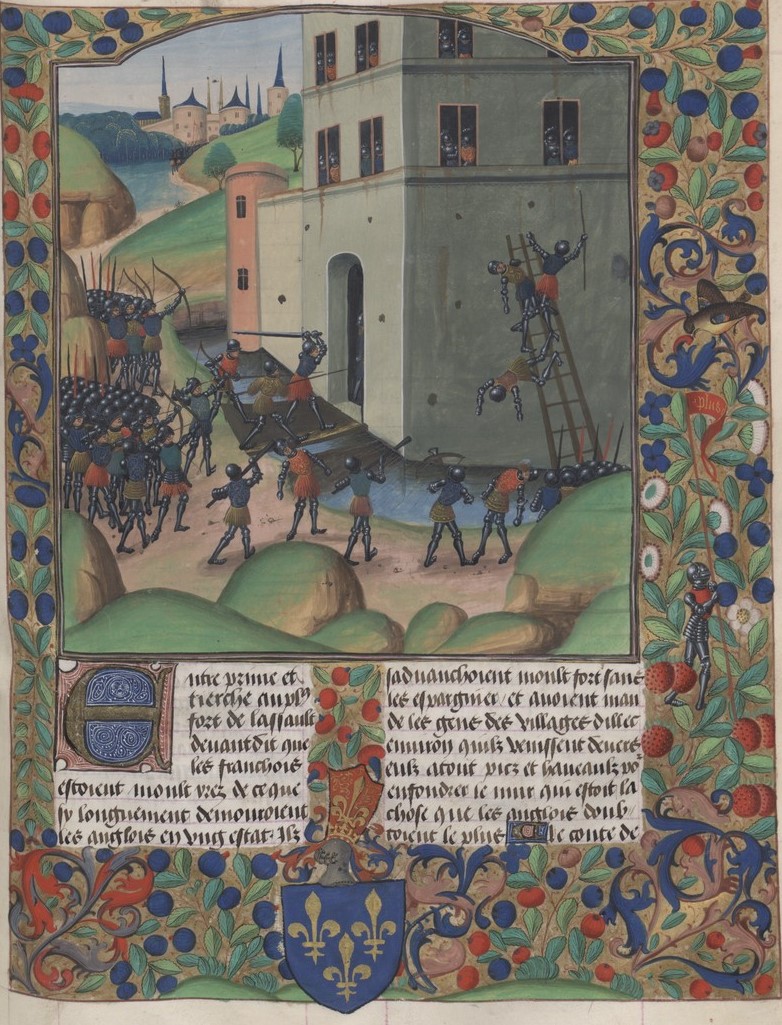 Entre prime et
tierche ou plus
fort de lassault
devantdit que
les franchois
estoient moult yrez de ce que
sy longuement demouroient
les anglois en ung estat. Ilz
sadvanchoient moult fort sans
les espargnier. et avoient man
de les gens des villages dillec
environ quilz venissent devers
eulz atout picz et haveaulz po
enfondrer le mur qui estoit la
chose que les anglois doub
toient le plus. Le conte de
plus